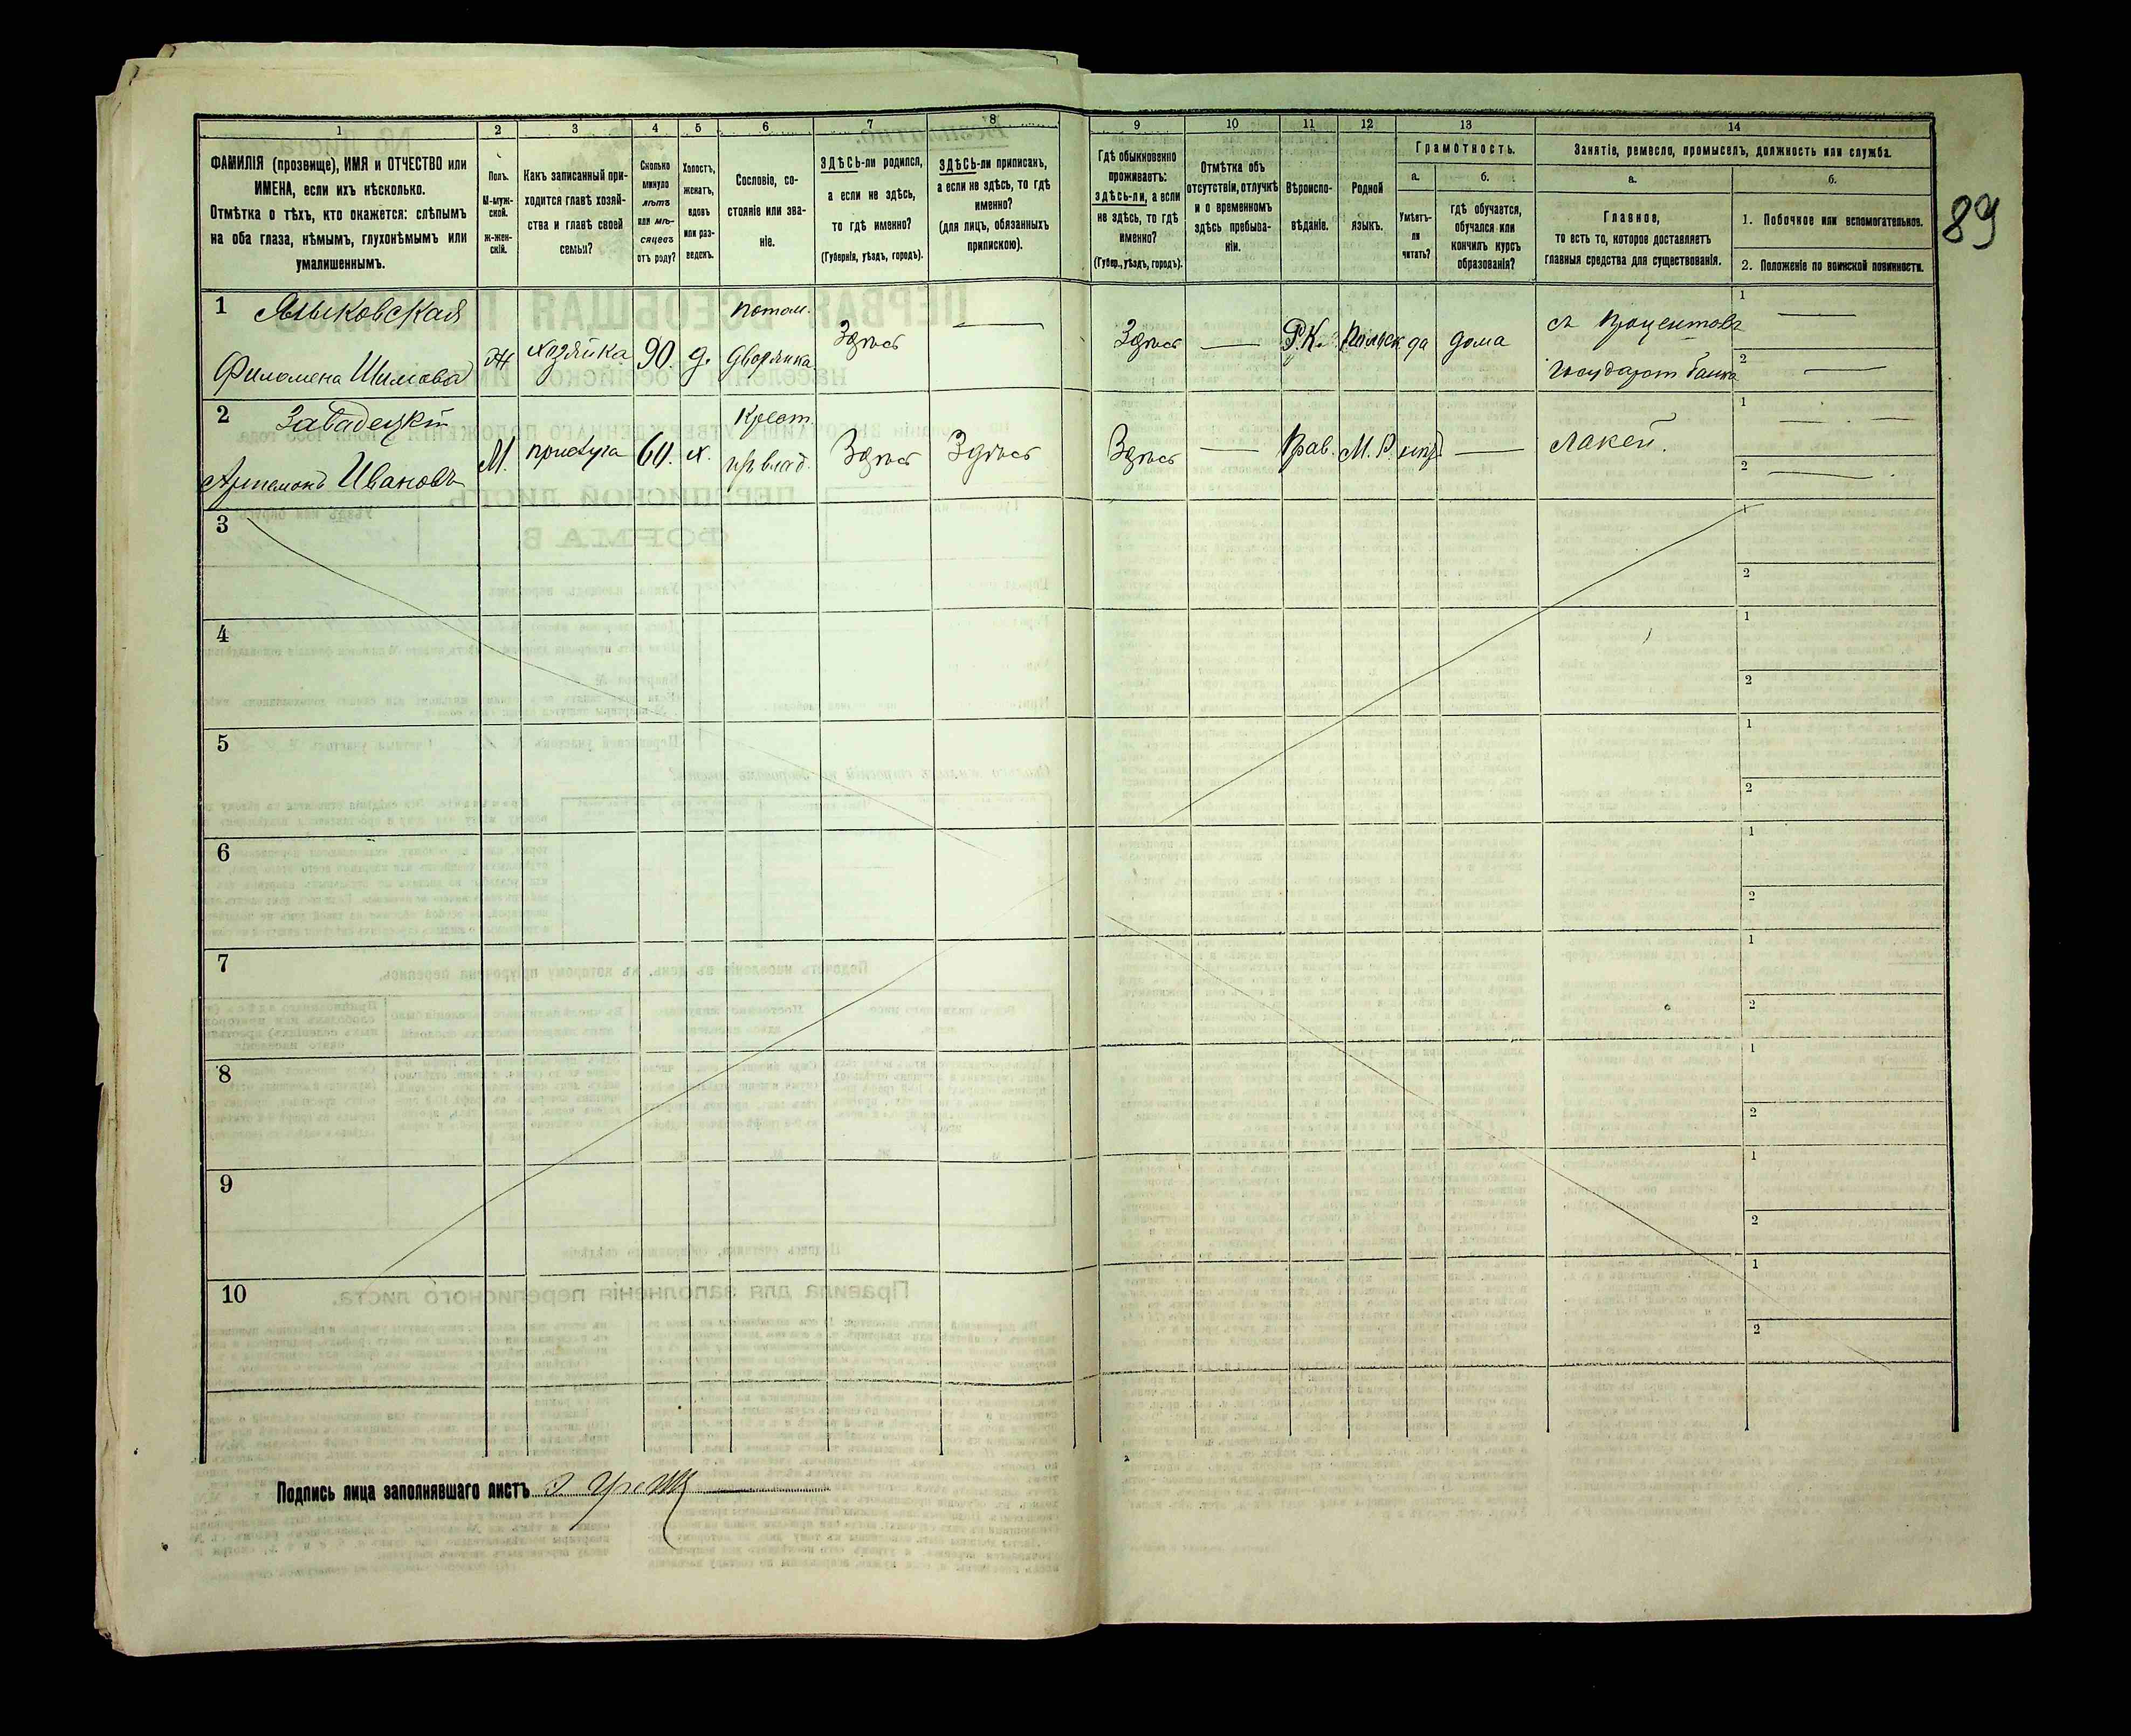 89
1
2
3
4
5
6
7
8
9
10
11
12
13
14
ФАМИЛІЯ (прозвище), ИМЯ и ОТЧЕСТВО или
ИМЕНА, если ихъ нѣсколько.
Отмѣтка о тѣхъ, кто окажется: слѣпымъ
на оба глаза, нѣмымъ, глухонѣмымъ или
умалишеннымъ.
Полъ.
М-муж-
ской.
Ж-жен-
скій.
Какъ записанный при-
ходится главѣ хозяй-
ства и главѣ своей
семьи?
Сколько
минуло
лѣтъ
или мѣ-
сяцевъ
отъ роду?
Холостъ,
женатъ,
вдовъ
или раз-
веденъ.
Сословіе, со-
стояніе или зва-
ніе.
ЗДѢСЬ-ли родился,
а если не здѣсь,
то гдѣ именно?
(Губернія, уѣздъ, городъ).
ЗДѢСЬ-ли приписанъ,
а если не здѣсь, то гдѣ
именно?
(для лицъ, обязанныхъ
припискою).
Гдѣ обыкновенно
проживаетъ:
здѣсь-ли, а если
не здѣсь, то гдѣ
именно?
(Губер., уѣздъ, городъ).
Отмѣтка объ
отсутствіи, отлучкѣ
и о временномъ
здѣсь пребыва-
ніи.
Вѣроиспо-
вѣданіе.
Родной
языкъ.
Грамотность.
а.
Умѣетъ-
ли
читать?
б.
гдѣ обучается,
обучался или
кончилъ курсъ
образованія?
Занятіе, ремесло, промыселъ, должность или служба.
а.
Главное,
то есть то, которое доставляетъ
главныя средства для существованія.
б.
1. Побочное или вспомогательное.
2. Положеніе по воинской повинности.
1
Филомена
Ж
хозяйка
90.
д.
потом.
дворянка
Здѣсь
Здѣсь
Р.К.
Польск
да
дома
съ процентовъ
Государст банка
1
2
2
Завадецкій
Артемонъ Ивановъ
М.
прислуга
60.
х.
Крест.
Здѣсь
Здѣсь
Здѣсь
Прав.
М.Р.
лакей.
1
2
3
1
2
4
1
2
5
1
2
6
1
2
7
1
2
8
1
2
9
1
2
10
1
2
Подпись лица заполнявшаго листъ